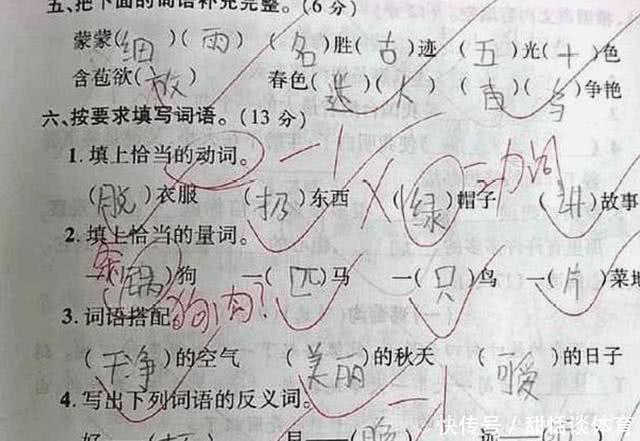 五、把下面的词语补充完整。(6分)
蒙蒙(细)(雨) (名)胜(古)迹 (五)光(十)色
含苞欲(放) 春色(迷)(人) (百)()争艳
六、按要求填写词语。(13分)
1.填上恰当的动词。 -1 动词
(脱)衣服 (扔)东西 (绿)帽子 (讲)故事
2.填上恰当的量词。
(锅)狗 一(匹)马 一(只)鸟 一(片)菜地
狗肉?
3.词语搭配
(干净)的空气 (美丽)的秋天 (可爱)的日子
4.写出下列词语的反义词。
快传号/甜恬谈体育